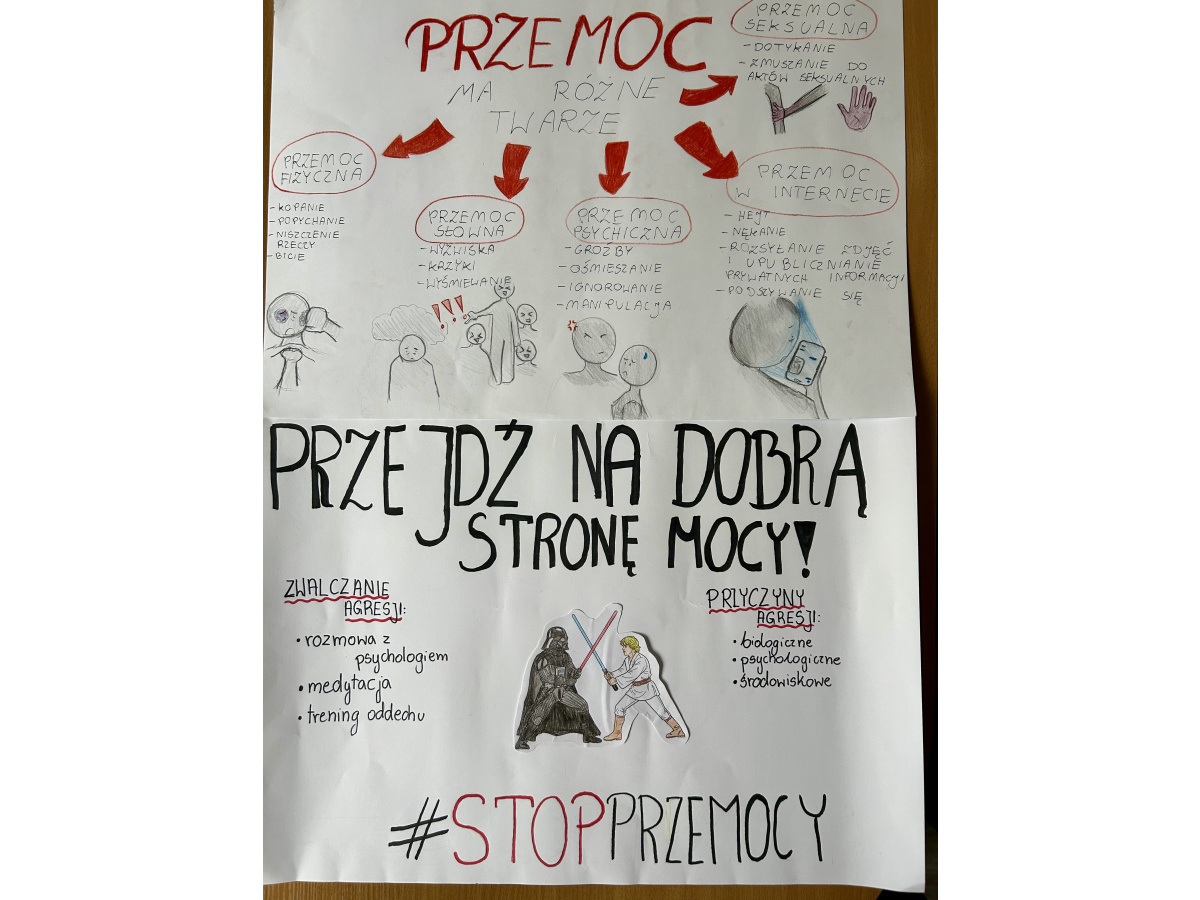 PRZEMOC
MA RÓŻNE
TWARZE
PRZEMOC
SEKSUALNA
- DOTYKANIE
- ZMUSZANIE DO
AKTÓW SEKSUALNYCH
PRZEMOC
FIZYCZNA
- KOPANIE
- POPYCHANIE
- NISZCZENIE
RZECZY
- BICIE
PRZEMOC
SŁOWNA
- WYZWISKA
- KRZYKI
- WYŚMIEWANIE
!!!
PRZEMOC
PSYCHICZNA
- GROŹBY
- OŚMIESZANIE
- IGNOROWANIE
- MANIPULACJA
PRZEMOC
W INTERNECIE
- HEJT
- NĘKANIE
- ROZSYŁANIE ZDJĘĆ
I UPUBLICZNIANIE
PRYWATNYCH INFORMACJI
- PODSZYWANIE SIĘ
PRZEJDŹ NA DOBRĄ
STRONĘ MOCY!
ZWALCZANIE
AGRESJI:
• rozmowa z
psychologiem
• medytacja
• trening oddechu
PRZYCZYNY
AGRESJI:
• biologiczne
• psychologiczne
• środowiskowe
#STOPPRZEMOCY